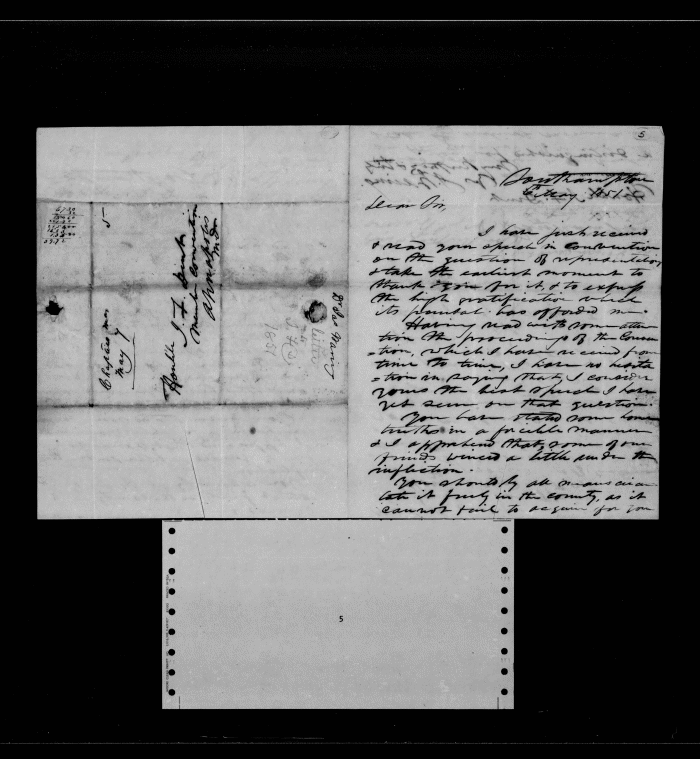 5
Southampton
6 May 1851
Dear Sir,
I have just received
& read your speech in convention
on the question of representation,
& take the earliest moment to
thank you for it, & to express
the high gratification which
its perusal has afforded me.
Having read with some atten
tion the proceedings of the Conven
=tion, which I have received from
time to time, I have no hesita
=tion in saying that I consider
yours the best speech I have
yet seen on that question.
You have stated some home
truths in a forcible manner
& I apprehend that some of our
friends winced a little under the
infliction.
You should by all means circu
late it freely in the county, as it
cannot fail to acquire for you
5
Chaptico
May 7
Honble
Md Convention
Annapolis
Md
1851
5